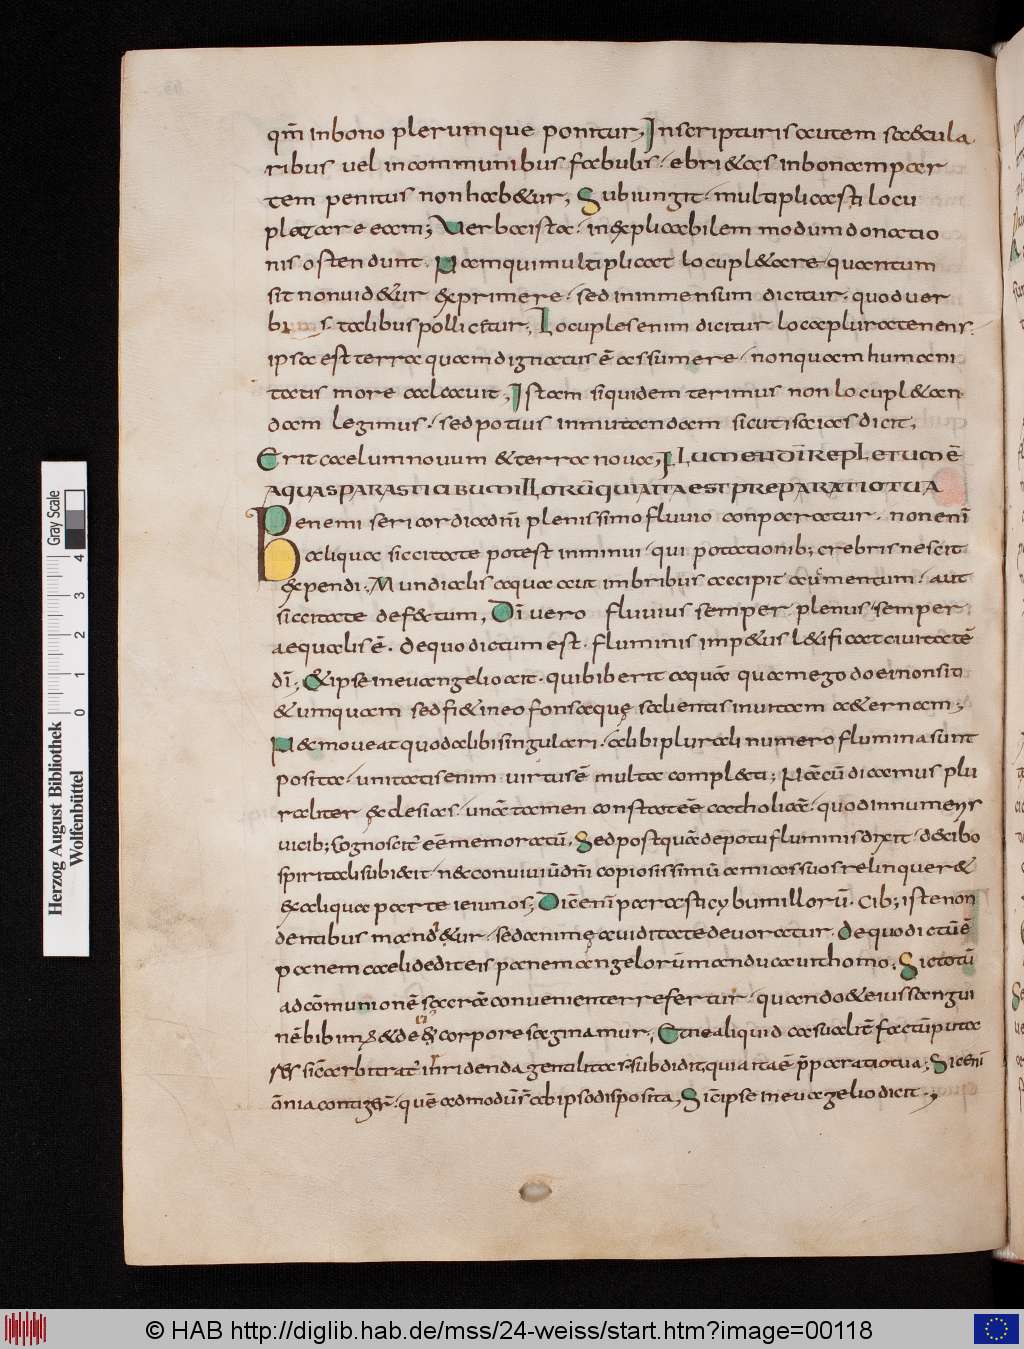 qm̄ inbono plerumque ponitur, Inscripturis autem s&cula
ribus vel incommunibus fabulis · ebri&as inbonampar
tem penitus nonhab&ur, Subiungit · multiplicasti locu
pl&are eam; Verbaista · in&plicabilem modum donatio
nis ostendunt. Namquimultiplicat locupl&are quantum
sit nonuid&ur &primere · sed inmensum dicitur · quoduer
bis talibus pollicetur, Locuples enim dicitur loca pluratenens.
ipsa est terra quam dignatus ē assumere · nonquam humani
tatis more calcauit, Istam siquidem terimus non locupl&an
dam legimus · sed potius inmutandam sicut isaias dicit,
Erit caelum nouum & terra noua, FLUMEN DĪ REPLETUM Ē
AQUAS PARASTI CIBUM ILLORŪ QUIA ITA EST PREPARATIO TUA
Bene misericordia dn̄i plenissimo fluuio conparatur · non eni
aliqua siccitate potest inminui · qui potationib; crebris nescit
&pendi. Mundialis aqua aut imbribus accipit aumentum · aut
siccitate def&tum, Dī vero fluuius semper plenus semper
aequalis ē. dequo dictum est · fluminis imp&us l&ificat ciuitatē
dī; & ipse ineuangelio ait · qui biberit aquā quam ego do ei non siti
& umquam sed fi& in eo fons aquę salientis inuitam a&ernam;
N& moueat quod alibi singulari · alibi plurali numero flumina sunt
posita · unitatis enim uirtus ē multa compl&ti; Nā cū dicamus plu
raliter &clesias · unā tamen constat eē catholicā · quod innumeris
uicib; cognoscit' eē memoratū, Sed postquā de potu fluminis dixit · de cibo
spiritali subiecit · n& conuiuiū dn̄i copiosissimū amicos suos relinquer&
&aliqua parte ieiunos; Dic̄ enī parasti cybum illorū. Cib; iste non
dentibus mand&ur · sed animę auiditate deuoratur. dequo dictū ē
panem caeli dedit eis panem angelorū manducauit homo. Sic totū
ad cōmunionē sacrā conuenienter refertur · quando & eius sanguinē
nē bibimus & de ei' corpore saginamur, Et ne aliquid casualit' factū puta
res sic̄ arbitrat' inridenda gentilitas · subdidit, quia ita ē p̄paratio tua; Sic enī
ōnia contigers̄ · quē admodū s̄ ab ipso disposita, Sic̄ ipse in euangelio dicit.,
Gray Scale
0 1 2 3 4
Herzog August Bibliothek
Wolfenbüttel
© HAB http://diglib.hab.de/mss/24-weiss/start.htm?image=00118